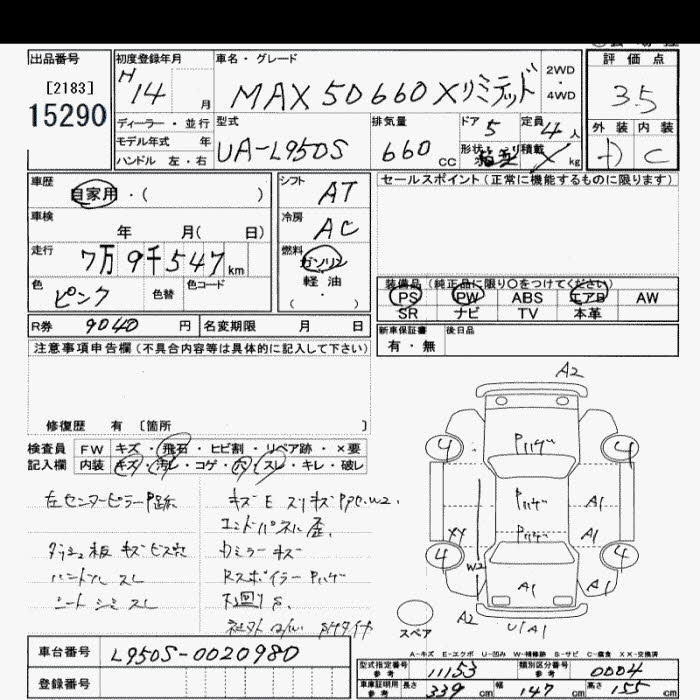 出品番号
[2183]
15290
初度登録年月
H14 月
ディーラー・並行
モデル年式 年
ハンドル 左・右
車名・グレード
MAX 5D 660 Xリミテッド
2WD
・
4WD
型式
UA-L950S
排気量
660 CC
ドア 5
定員 4人
形状
積載
kg
評価点
3.5
外装 内装
C
車歴
自家用・( )
車検
年 月( 日)
走行
7万9千547km
色
ピンク
色替
色コード
シフト
AT
冷房
AC
燃料
ガソリン
軽油
( ・ )
セールスポイント(正常に機能するものに限ります)
装備品(純正品に限り○をつけてください)
PS PW ABS エアB AW
SR ナビ TV 本革
R券 9040 円
名変期限 月 日
新車保証書
有・無
後日品
注意事項申告欄(不具合内容等は具体的に記入して下さい)
修復歴 有 [箇所 ]
検査員
記入欄
FW キズ・飛石・ヒビ割・リペア跡・×要
内装 キズ・汚レ・コゲ・穴・スレ・キレ・破レ
左センターピラーP跡
ダッシュ板 キズビス穴
ハンドル スレ
シート シミ スレ
キズ E スリキズ P W2.
エンドパネル 歪.
カミラー キズ
Rスポイラー Pハゲ
下回り S.
A2
4
4
Pハゲ
Pハゲ
A1
Pハゲ
A1
XX
4
4
W2
A1
A1
A2
U1A1
スペア
A-キズ E-エクボ U-凹み W-補修跡 S-サビ C-腐食 XX-交換済
車台番号 L950S-0020980
登録番号
型式指定番号
参考
11153
類別区分番号
参考
0004
車庫証明用
参考
長さ 339 cm
幅 147 cm
高さ 155 cm